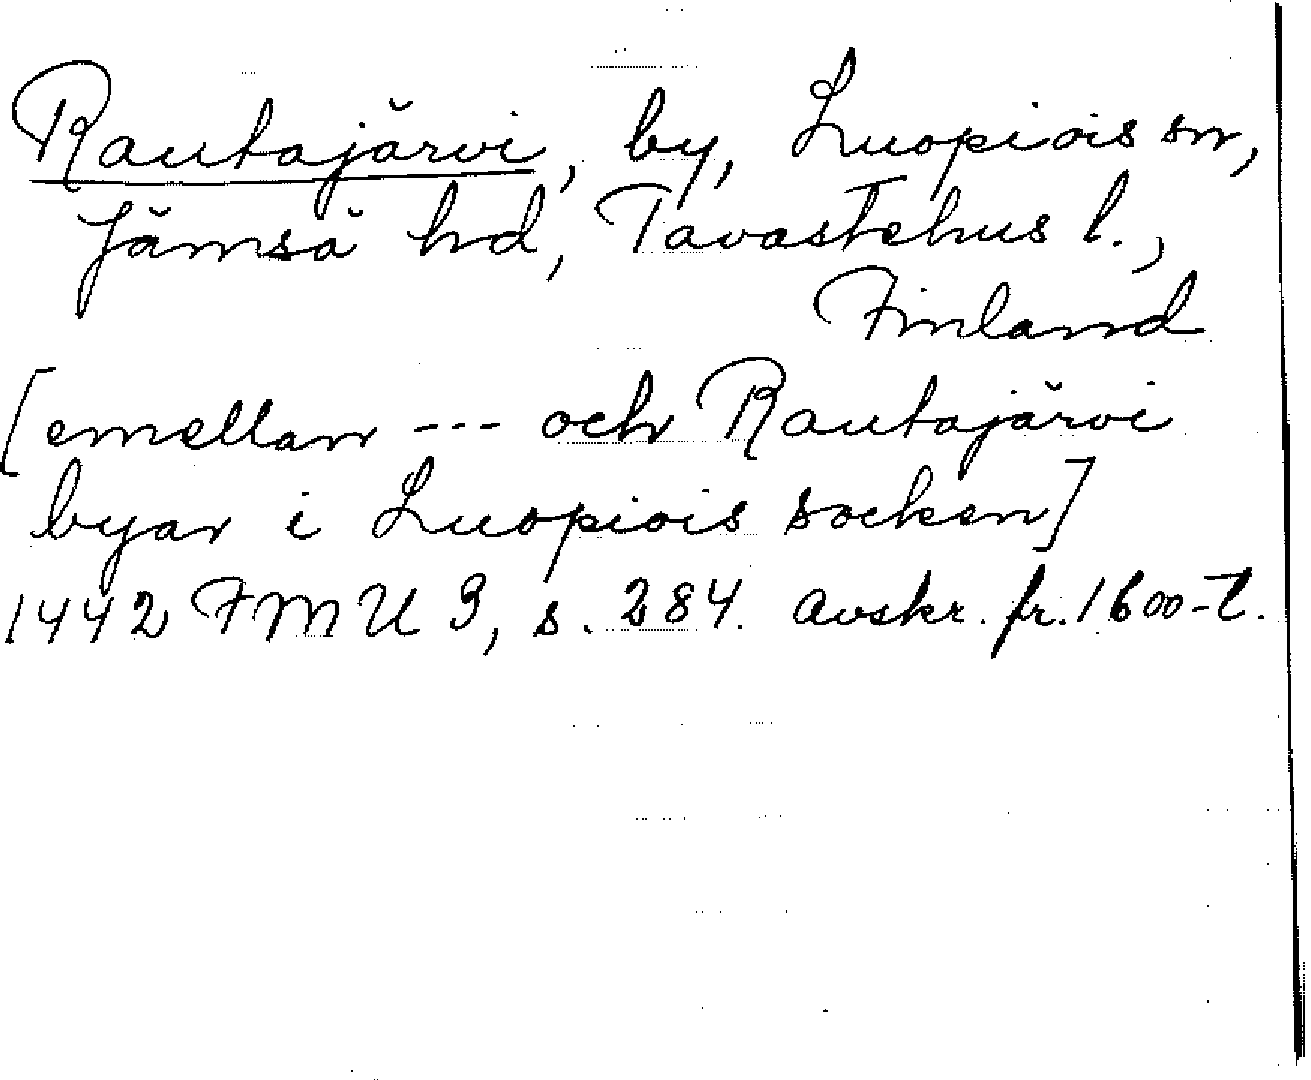 Rautajärvi, by, Luopiois sn,
Jämsä hd, Tavastehus l.,
Finland
[emellan --- och Rautajärvi
byar i Luopiois socken]
1442 FMU 3, s. 284. Avskr. fr. 1600-t.